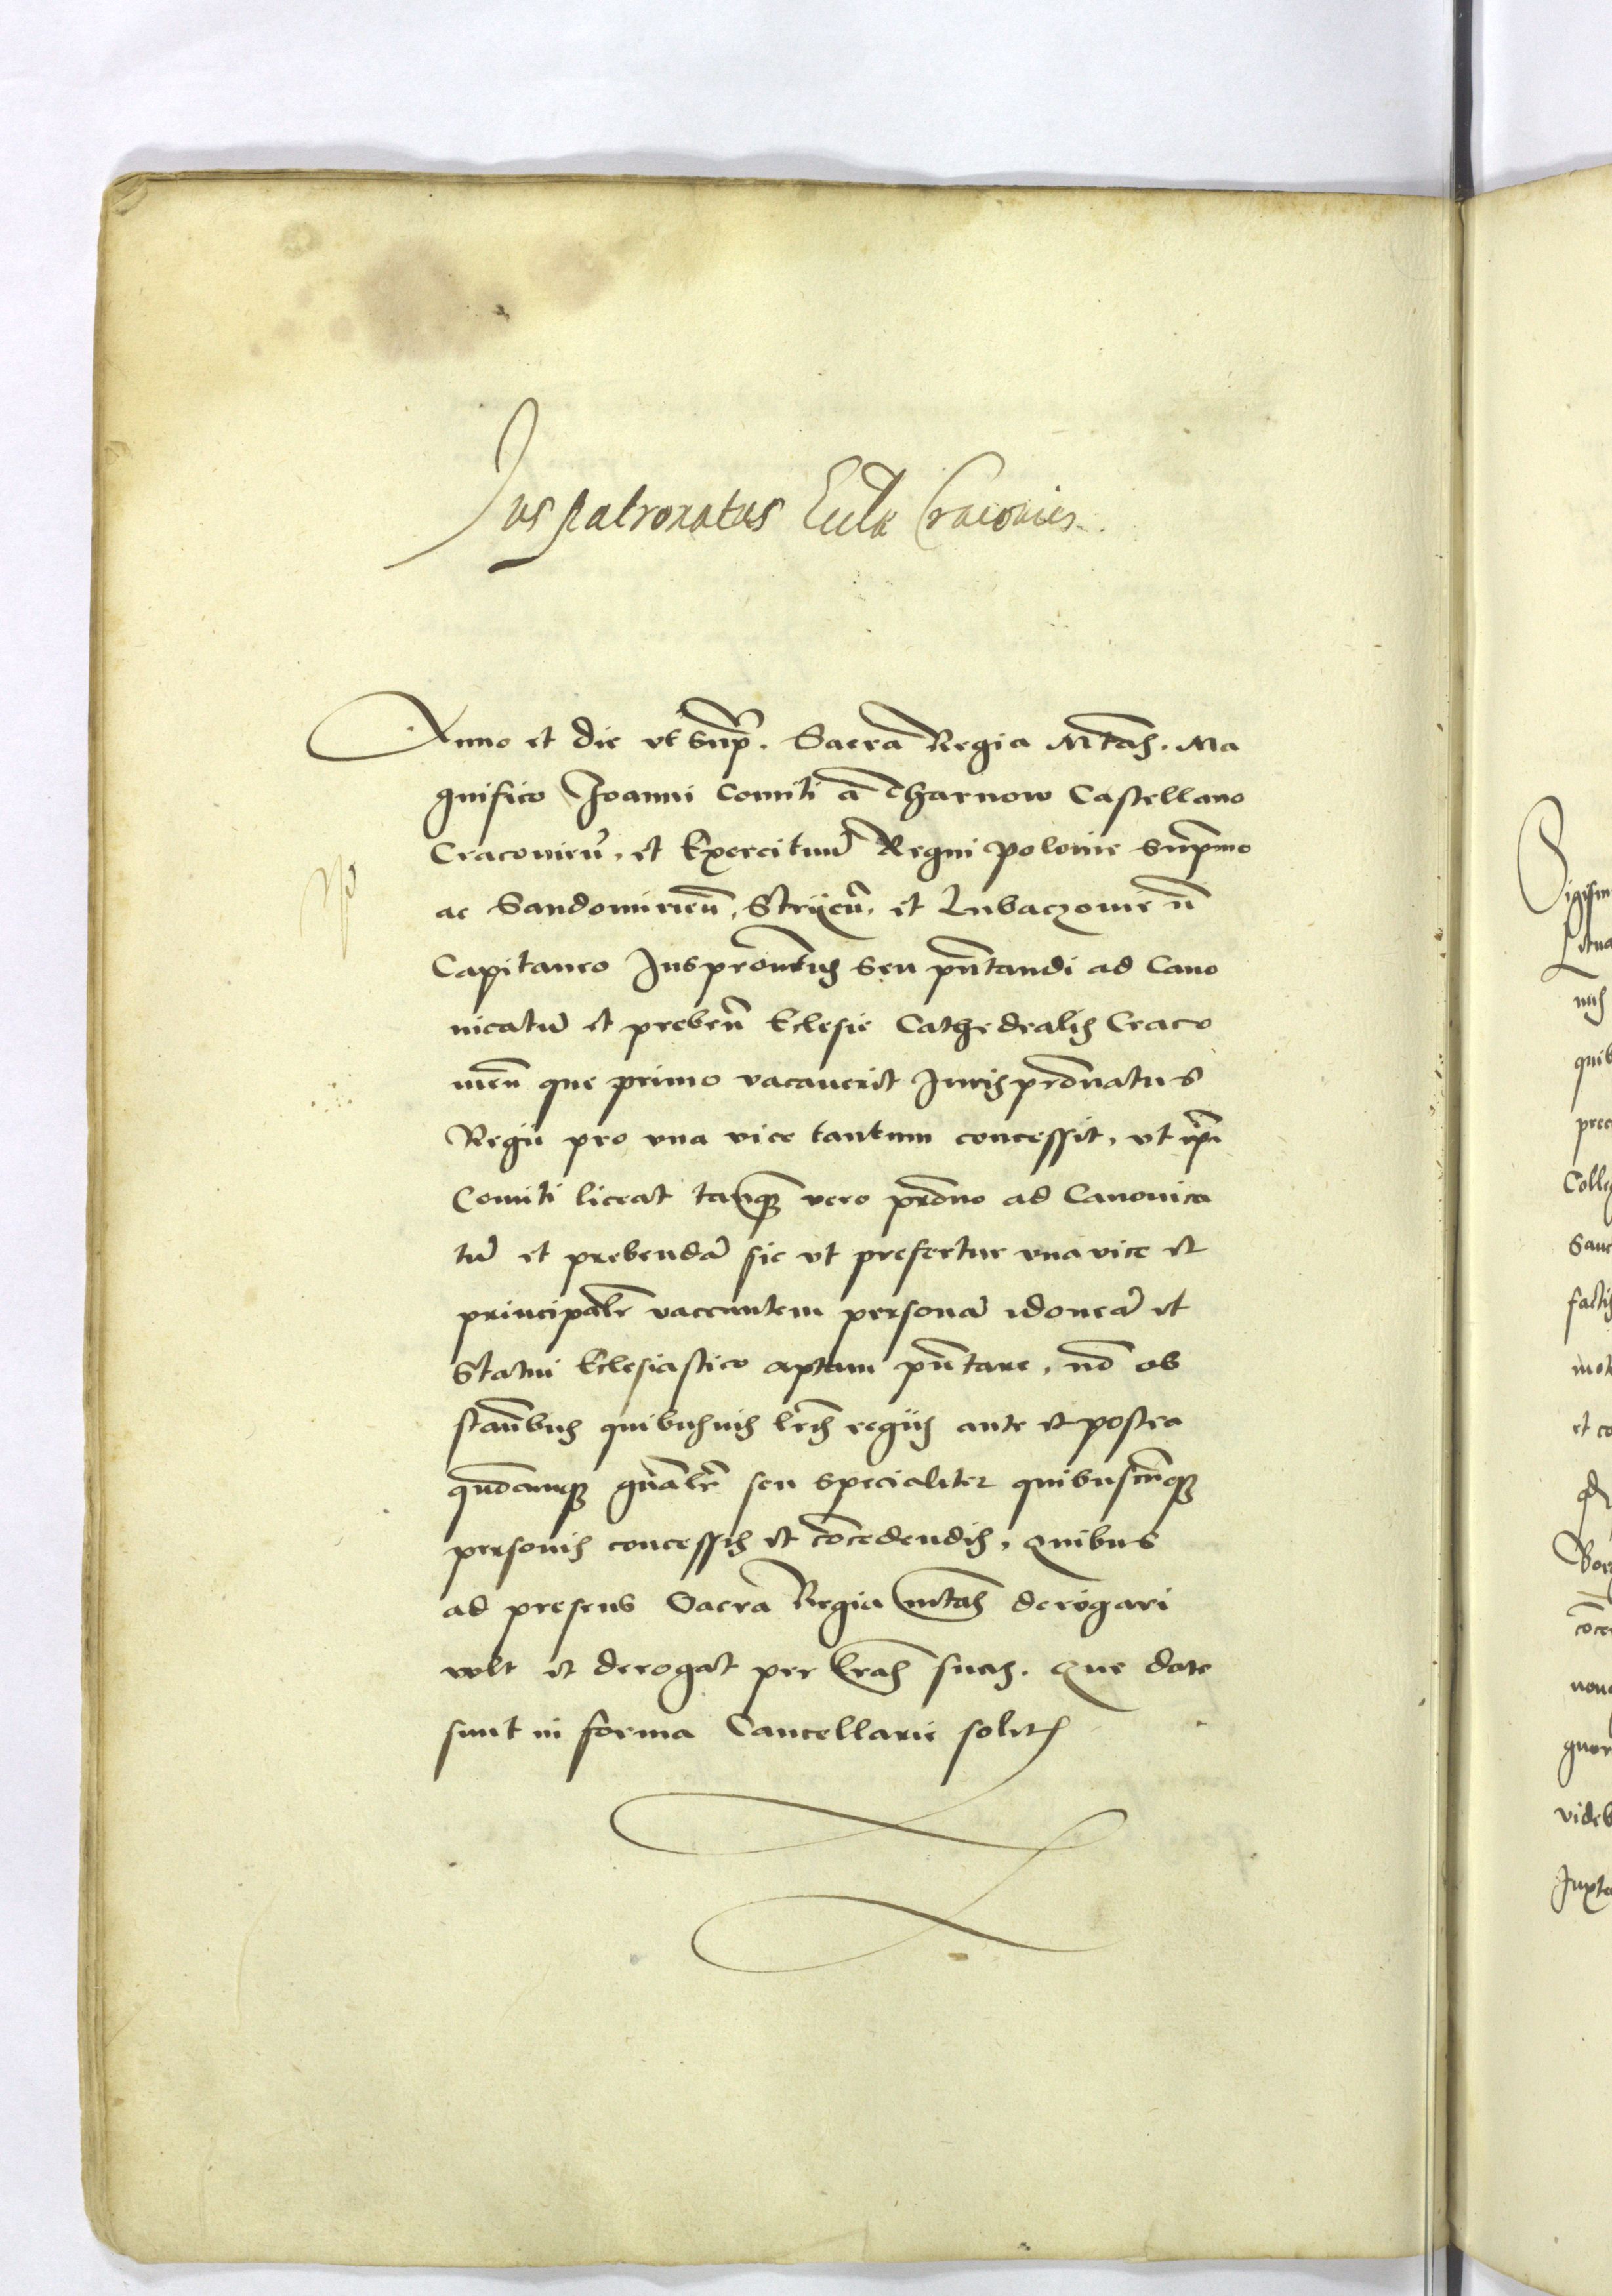 Jus patronatus Eccla Cracovien.
Anno et die ut Supr. Sacra Regia Mtas. Ma
gnifico Joanni Comiti a Tharnow Castellano
Cracovien̄. et Exercituū Regni Polonie Supmo
ac Sandomirien̄. Stryen̄. et Lubaczovien̄
Capitaneo Jusprontus seu pn̄tandi ad Cano
nicatū et preben̄ Eclesie Cathedralis Craco
vien̄ que primo vacaverit Jurisprōnatus
Regii pro una vice tantum concessit. ut ip̄i
Comiti liceat tanq̄ vero prōno ad Canonica
tū et prebendā sic ut prefertur una vice et
principalr̄ vaccantem personā idoneā et
Statui Eclesiastico aptam pn̄tare. nō ob
stan̄bus quibusuis lr̄is regiis ante et postea
quōcunq̄ gn̄alr̄ seu specialiter quibuscūq̄
personis concessis et cōcedendis. Quibus
ad presens Sacra Regia mtas derogari
vult et derogat per lr̄as suas. Que date
sunt in forma Cancellarie solit